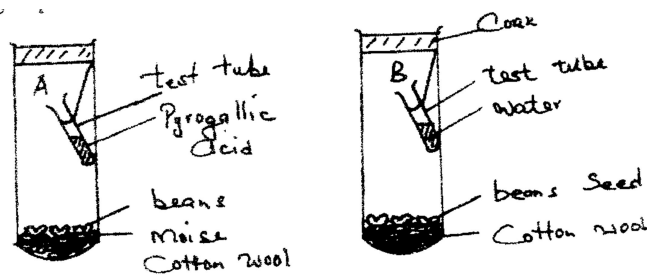 A
test tube
Pyrogallic
acid
beans
Moise
Cotton wool
B
Coak
test tube
water
beans Seed
Cotton wool